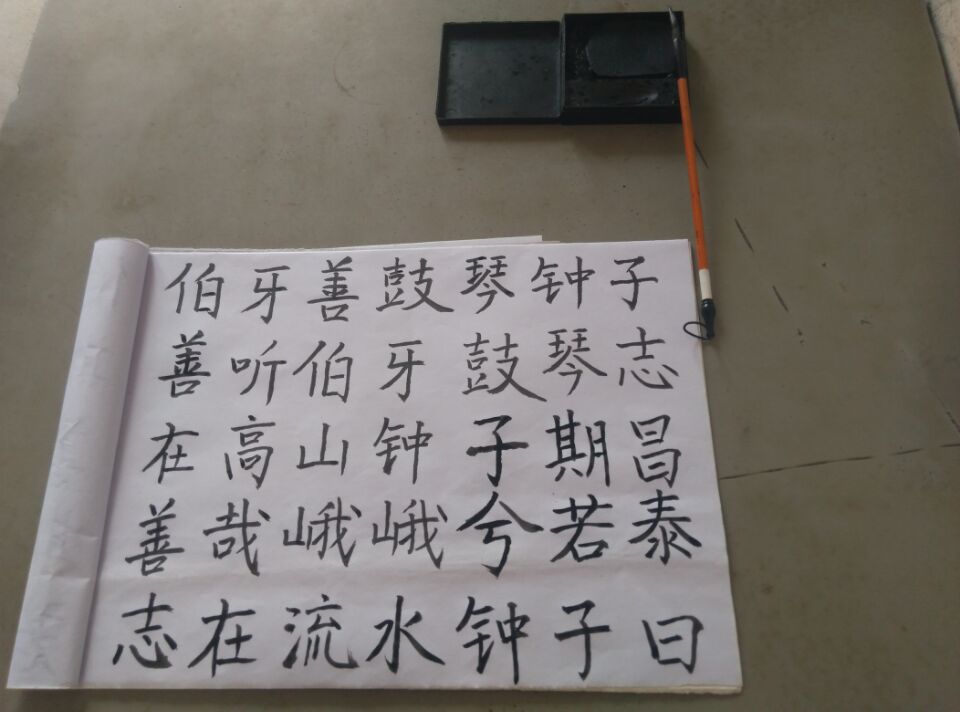 伯牙善鼓琴钟子
善听伯牙鼓琴志
在高山钟子期昌
善哉峨峨兮若泰
志在流水钟子曰